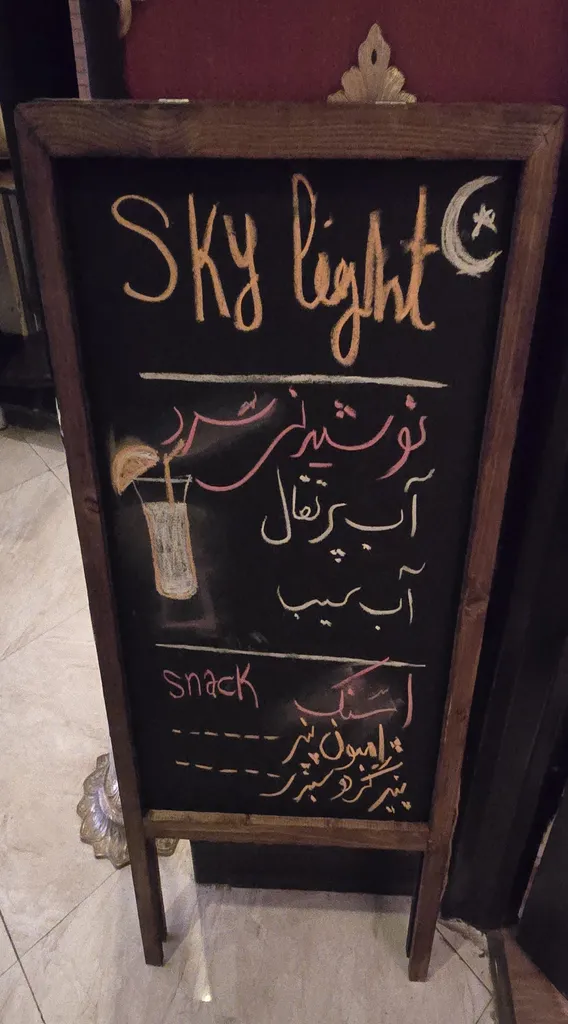 Sky light
نوشیدنی سرد
آب پرتقال
آب سیب
snack اسنک
پامبون پنیر - - - - - -
پنیر گردو سبزی - - - - -